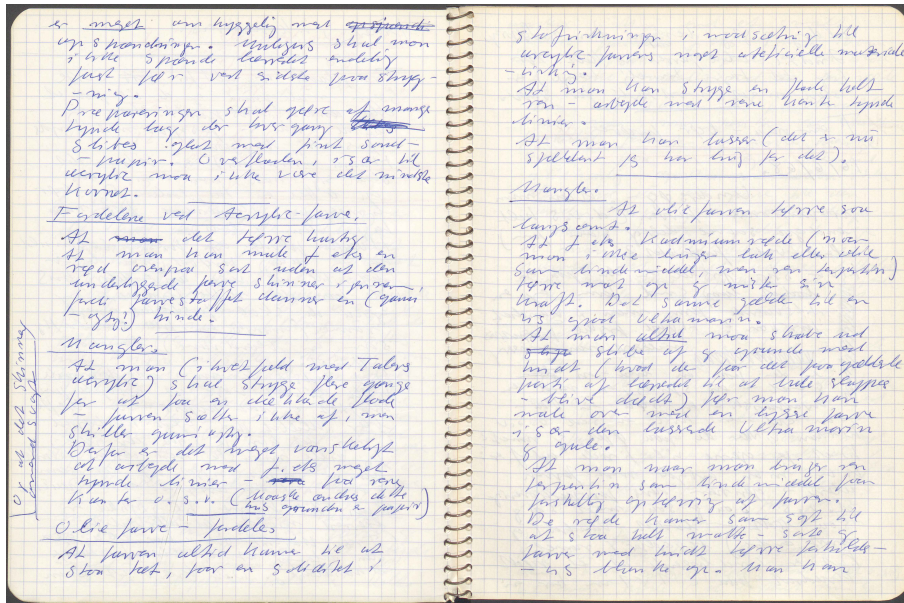 er meget omhyggelig med
opspændningen. Muligens skal man
ikke spænde lærredet endelig
fast før ved sidste paastryg-
-ning.
Præpareringen skal gøres af mange
tynde lag der hver gang
slibes glat med fint sand-
-papir. Overfladen, især til
acrylic maa ikke være det mindste
kornet.
Fordelene ved Acrylic-farve.
At det tørrer hurtig
At man kan male f eks en
rød ovenpaa sort uden at den
underliggende farve skinner igennem,
fordi farvestoffet danner en (gummi
-agtig!) hinde.
Mangler.
At man (i hvert fald med Talens
acrylic) skal stryge flere gange
for at faa en dækkende flade
- farven sætter ikke af, men
skiller gummiagtig.
Derfor er det meget vanskeligt
at arbejde med f. eks meget
tynde linier - faa rene
Kanter o.s.v. (Maaske ændres dette
hvis grunden er papir)
og at det skinner
ovenover sort
Olie farve - fordeles
At farven altid kommer til at
staa tæt, faar en soliditet i
stofvirkningen i modsætning til
acrylic-farvens noget artificielle materiale
-virkning.
At man kan stryge en flade helt
ren - arbejde med rene kanter tynde
linier.
At man kan lassere (det er nu
sjældent jeg har brug for det).
Mangler.
At olie farven tørre saa
langsomt.
At f eks Kadmiumrøde (naar
man ikke bruger lak eller olie
som bindemiddel, men ren terpentin)
tørre mat op og mister sin
kraft. Det samme gælder til en
vis grad Ultramarin.
At man altid maa skabe ud
slibe af og grunde med
hvidt (hvad der faar det paagældende
parti af lærredet til at lude slappe
- blive dødt) før man kan
male over med en lysere farve
især den lasserende Ultramarin
og gule.
At man naar man bruger ren
terpentin som bindemiddel faar
forskellig optørring af farven.
De røde kommer som sagt til
at staa helt matte - sorte og
farver med hvidt tørre forholds-
-vis blanke op. Man kan